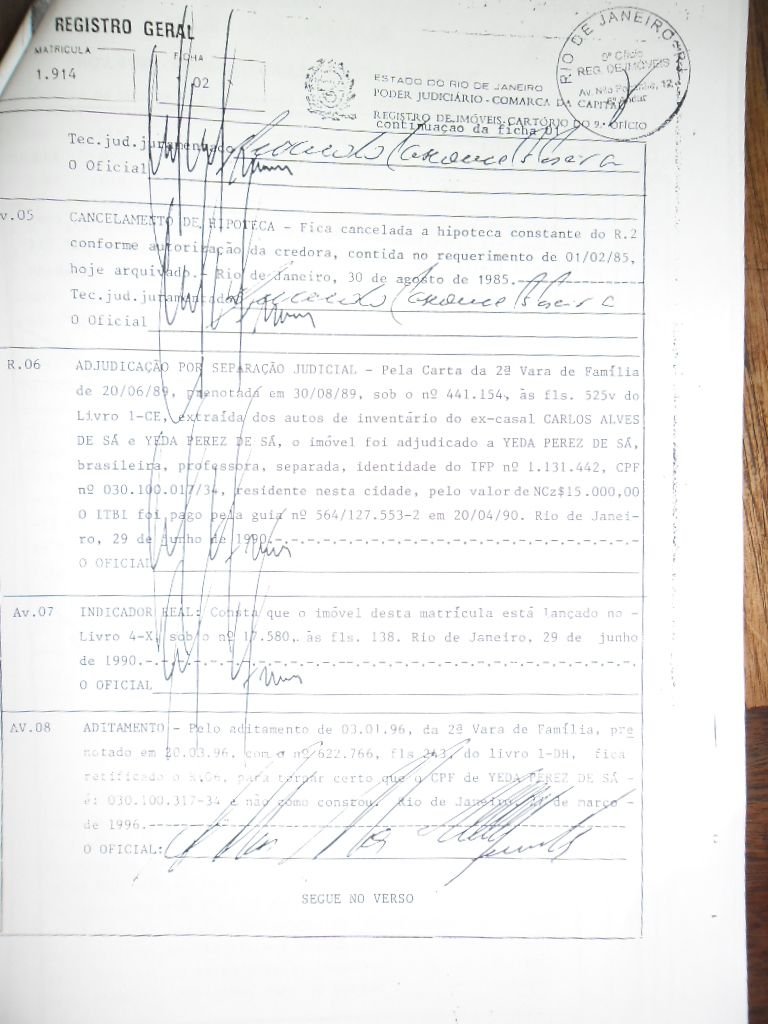 REGISTRO GERAL
MATRÍCULA
1.914
FICHA
02
RIO DE JANEIRO-RJ
9º Ofício
REG. DE IMÓVEIS
ESTADO DO RIO DE JANEIRO
PODER JUDICIÁRIO - COMARCA DA CAPITAL
REGISTRO DE IMÓVEIS-CARTÓRIO DO 9º OFÍCIO
continuação da ficha 01
Tec.jud.juramentado
O Oficial
v.05 CANCELAMENTO DE HIPOTECA - Fica cancelada a hipoteca constante do R.2
conforme autorização da credora, contida no requerimento de 01/02/85,
hoje arquivado.- Rio de Janeiro, 30 de agosto de 1985.
Tec.jud.juramentado
O Oficial
R.06 ADJUDICAÇÃO POR SEPARAÇÃO JUDICIAL - Pela Carta da 2ª Vara de Família
de 20/06/89, prenotada em 30/08/89, sob o nº 441.154, às fls. 525v do
Livro 1-CE, extraída dos autos de inventário do ex-casal CARLOS ALVES
DE SÁ e YEDA PEREZ DE SÁ, o imóvel foi adjudicado a YEDA PEREZ DE SÁ,
brasileira, professora, separada, identidade do IFP nº 1.131.442, CPF
nº 030.100.017/34, residente nesta cidade, pelo valor de NCz$15.000,00
O ITBI foi pago pela guia nº 564/127.553-2 em 20/04/90. Rio de Janei-
ro, 29 de junho de 1990.-.-.-.-.-.-.-.-.-.-.-.-.-.-.-.-.-.-.-.-.-.
O OFICIAL
Av.07 INDICADOR REAL: Consta que o imóvel desta matrícula está lançado no -
Livro 4-X, sob o nº 17.580, às fls. 138. Rio de Janeiro, 29 de junho
de 1990.-.-.-.-.-.-.-.-.-.-.-.-.-.-.-.-.-.-.-.-.-.-.-.-.-.-.-.
O OFICIAL
AV.08 ADITAMENTO - Pelo aditamento de 03.01.96, da 2ª Vara de Família, pre
notado em 20.03.96, com o nº 622.766, fls 243, do livro 1-DH, fica
retificado o R.06, para tornar certo que o CPF de YEDA PEREZ DE SÁ -
é: 030.100.317-34 e não como constou. Rio de Janeiro, de março -
de 1996.
O OFICIAL:
SEGUE NO VERSO